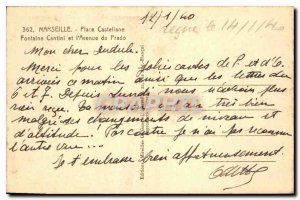 362. MARSEILLE. - Place Castellane
Fontaine Cantini et l'Avenue du Prado
12/1/40
Reçue le 14/1/40
Mon cher
Merci pour les jolies cartes de P. et d'O.
arrivées ce matin ainsi que les lettres du
6 et 7. Depuis lundi nous n'avions plus
rien reçu. très bien
malgré les changements de niveau et
d'altitude. Par contre je n'ai pas reconnu
l'autre vue...
Je t'embrasse bien affectueusement.